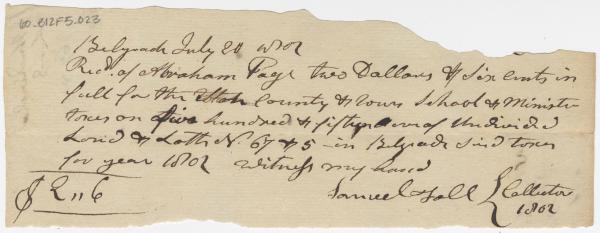 60.B12F5.023
Belgrade July 20 1802
Recd. of Abraham Page two Dollars & Six cents in
full for the State County & town School & Minister
taxes on five hundred & fifty acres of Undivided
Land & Lotts No. 67 & 5 - in Belgrade said taxes
for year 1802 witness my hand
Samuel Hall Collector
1802
$2"6